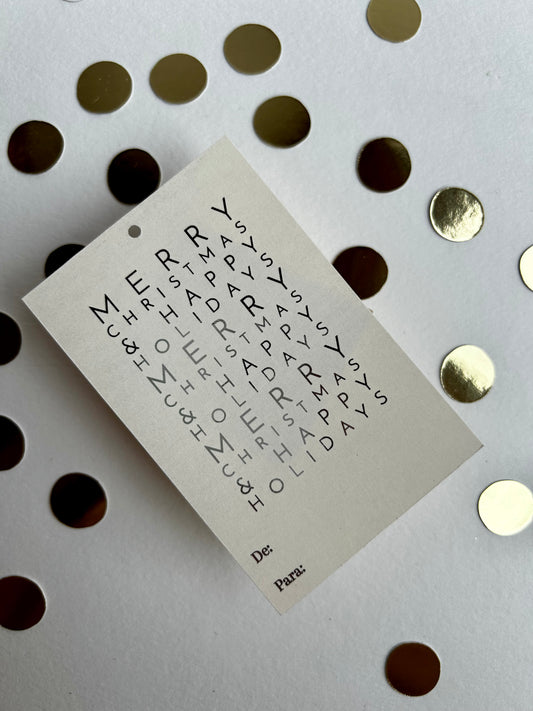 MERRY
CHRISTMAS
& HAPPY
HOLIDAYS
MERRY
CHRISTMAS
& HAPPY
HOLIDAYS
MERRY
CHRISTMAS
& HAPPY
HOLIDAYS
De:
Para: